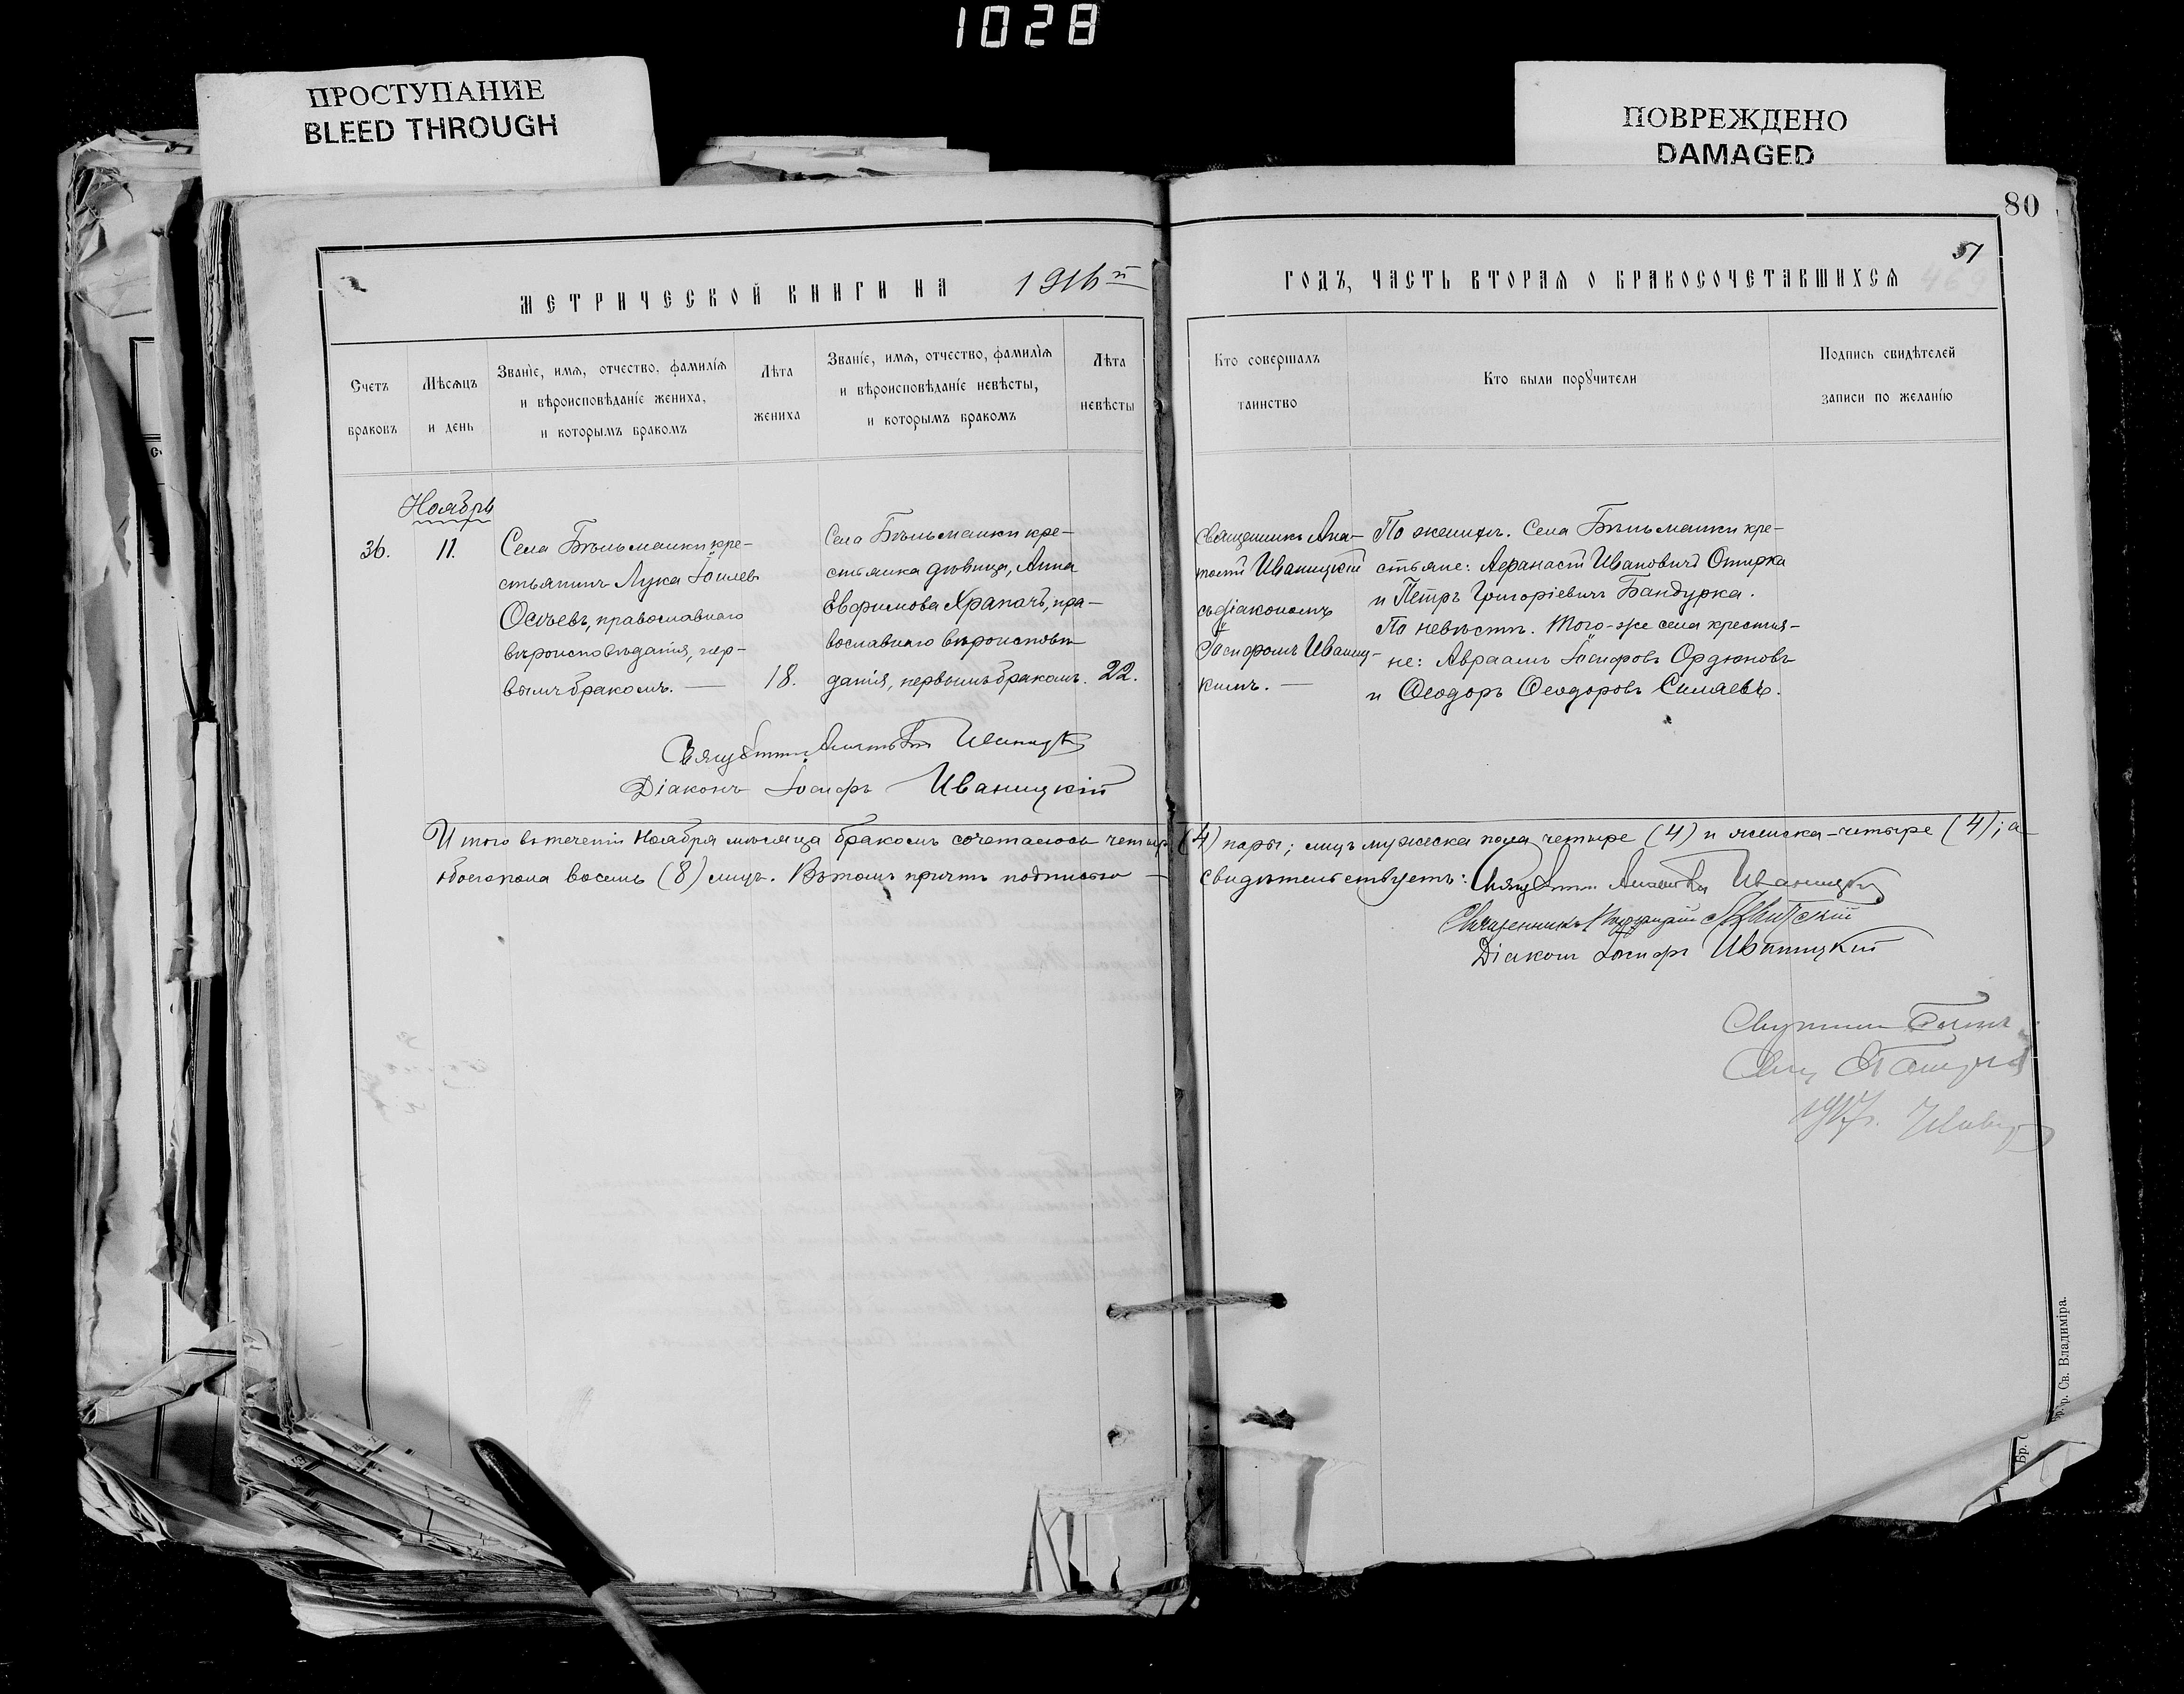 1028
ПРОСТУПАНИЕ
BLEED THROUGH
ПОВРЕЖДЕНО
DAMAGED
80
51
469
МЕТРИЧЕСКОЙ КНИГИ НА 1916й
ГОДЪ, ЧАСТЬ ВТОРАЯ О БРАКОСОЧЕТАВШИХСЯ
Счетъ
браковъ
Мѣсяцъ
и день
Званіе, имя, отчество, фамилія
и вѣроисповѣданіе жениха,
и которымъ бракомъ
Лѣта
жениха
Званіе, имя, отчество, фамилія
и вѣроисповѣданіе невѣсты,
и которымъ бракомъ
Лѣта
невѣсты
Кто совершалъ
таинство
Кто были порꙋчители
Подпись свидѣтелей
записи по желанію
Ноябрь
36.
11.
Села Бѣльманки кре-
стьянинъ Лука
православнаго
вѣроисповѣданія, пер-
вымъ бракомъ. —
18.
Села Бѣльманки кре-
стьянка дѣвица, Анна
Евфимова Храпачъ, пра-
вославнаго вѣроисповѣ-
данія, первымъ бракомъ.
22.
Священникъ Ана-
толій Иваницкій
съ діакономъ
Іосифомъ Иваниц-
кимъ. —
По женихѣ. Села Бѣльманки кре-
стьяне: Афанасій Ивановичъ
и Петръ Григоріевичъ Бандурка.
По невѣстѣ. Того-же села крестья-
не: Авраамъ Іосифовъ Ордюковъ
и Ѳеодоръ Ѳеодоровъ Силаевъ.
Священникъ Анатолій Иваницкій
Діаконъ Іосифъ Иваницкій
Итого въ теченіи Ноября мѣсяца бракомъ сочеталось четыре (4) пары; лицъ мужеска пола четыре (4) и женска-четыре (4); а
обоего пола восемь (8) лицъ. Въ томъ причтъ подписью — свидѣтельствуетъ: Священникъ Анатолій Иваницкій
Священникъ
Діаконъ Іосифъ Иваницкій
1917г.
Бр. Св. Владиміра.